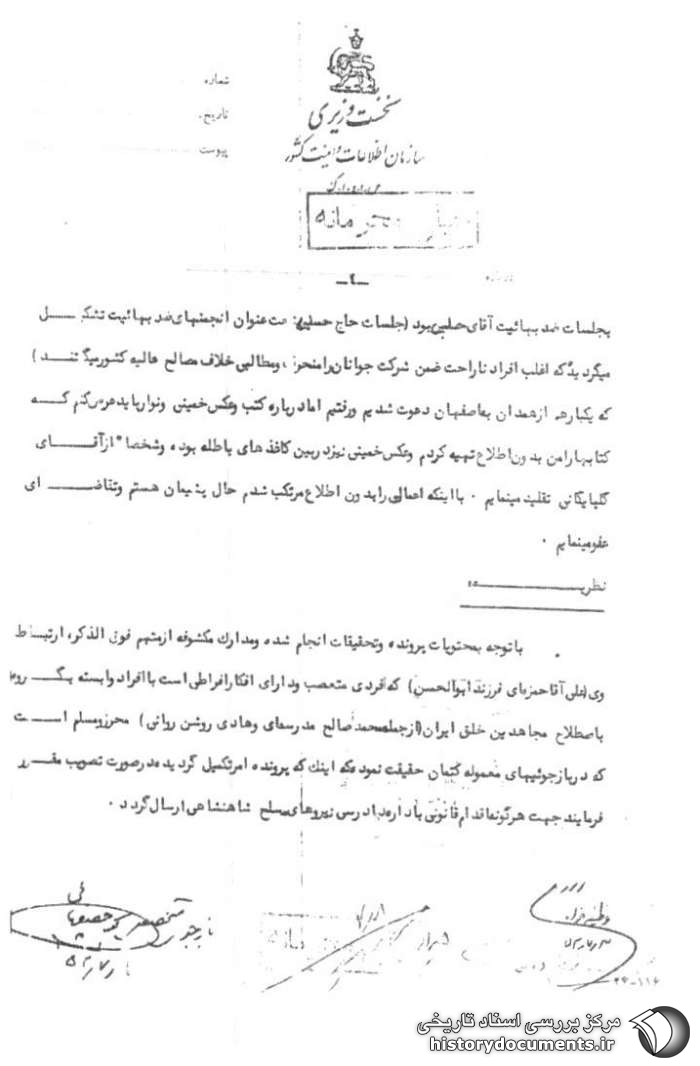 شماره
تاریخ.
پیوست
نخست وزیری
سازمان اطلاعات و امنیت کشور
خیلی محرمانه
-۲-
بجلسات ضد بهائیت آقای حلبی بود (جلسات حاج حلبی تحت عنوان انجمنهای ضد بهائیت تشکیل
میگردیدکه اغلب افراد ناراحت ضمن شرکت جوانان رامنحرف ، ومطالبی خلاف مصالح عالیه کشورمیگفتند )
که یکبارهم ازهمدان به اصفهان دعوت شدیم ورفتیم امادرباره کتب وعکس خمینی ونوارباید عرض کنم کـه
کتابهارامن بدون اطلاع تهیه کردم وعکس خمینی نیزدربین کاغذهای باطله بوده وشخصا" ازآقــای
گلپایگانی تقلید مینمایم . بااینکه اعمالی رابدون اطلاع مرتکب شدم حال پشیمان هستم وتقاضـــای
عفومینمایم .
نظریــــــه
باتوجه بمحتویات پرونده وتحقیقات انجام شده ومدارك مکشوفه ازمتهم فوق الذکر، ارتبــاط
وی(علی آقاحمزه ای فرزند ابوالحسن) که فردی متعصب ودارای افکارافراطی است باافراد وابسته بگــروه
باصطلاح مجاهدین خلق ایران(ازجمله محمد صالح مدرسه ای وهادی روشن روانی) محرزومسلم اســت
که دربازجوئیهای معموله کتمان حقیقت نموده که اینك که پرونده امرتکمیل گردیده درصورت تصویب مقــرر
فرمایند جهت هرگونه اقدام قانونی باداره دادرسی نیروهای مسلح شاهنشاهی ارسال گردد .
مرکز بررسی اسناد تاریخی
historydocuments.ir